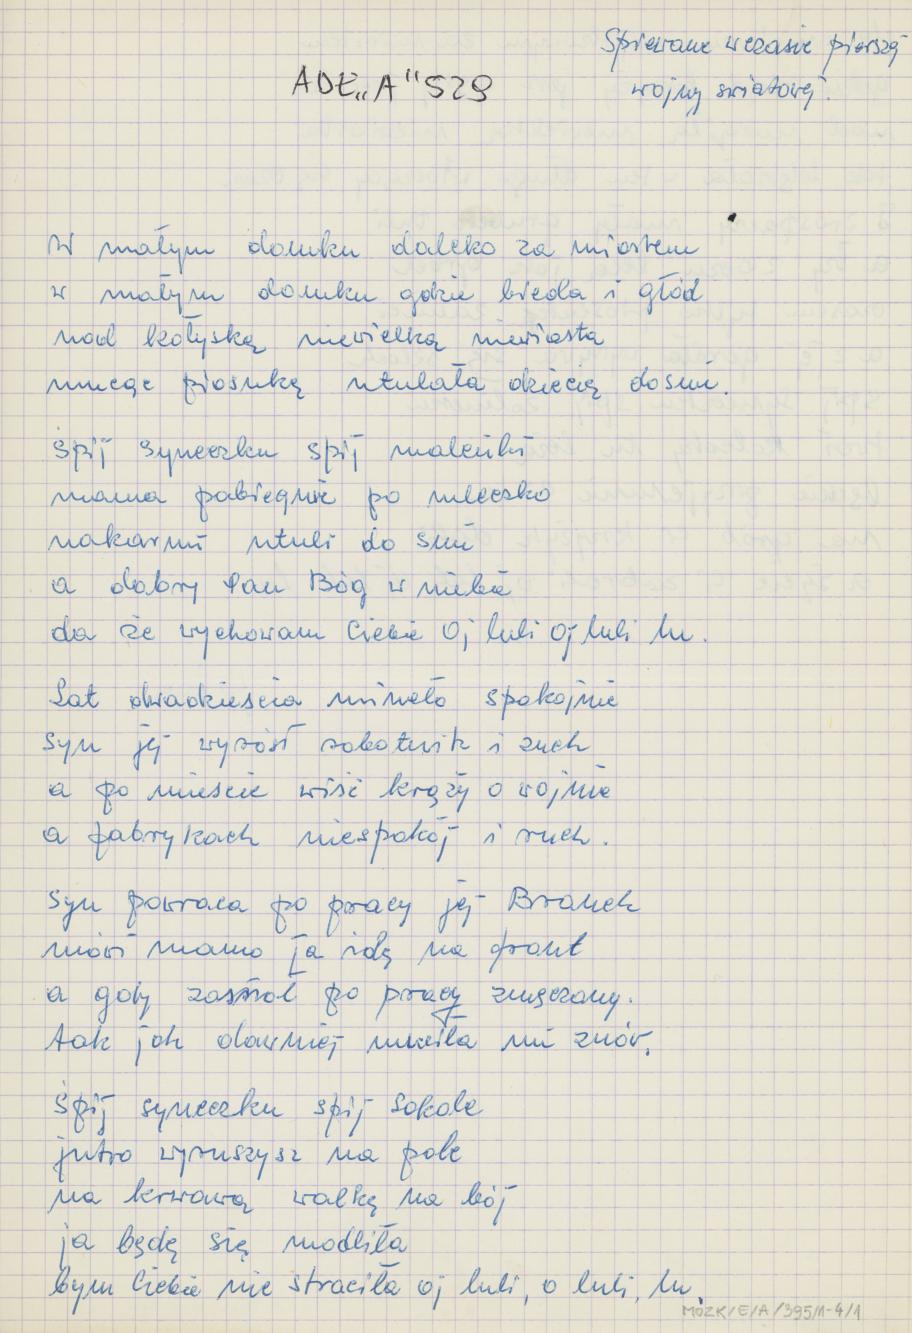 Spiewane wczasie pierszej
wojny swiatowej.
ADE „A" 529
W małym domku daleko za miastem
w małym domku gdzie bieda i głód
nad kołyską niewielką niewiasta
nucąc piosnką utulała dziecią dosnu.
Śpij syneczku śpij maleńki
mama pobiegnie po mleczko
nakarmi utuli do snu
a dobry Pan Bóg w niebie
da że wychowam Ciebie Oj luli Oj luli lu.
Lat dwadzieścia mineło spokojnie
Syn jej wyrósł robotnik i zuch
a po mieście wiść krąży o wojnie
a fabrykach niespokój i ruch.
Syn powraca po pracy jej
mówi mamo ja idę na front
a gdy zasnoł po pracy zmęczony.
tak jak dawniej nuciła mu znów.
Śpij syneczku śpij Sokole
jutro wyruszysz na pole
na krwawą walką na bój
ja będę się modliła
bym Ciebie nie straciła oj luli, o luli, lu.
MOZK/E/A/395/1-4/1